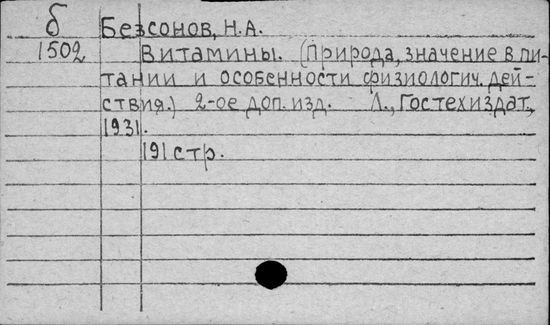 б Безсонов, Н.А.
1502 Витамины. (Природа, значение в пи-
тании и особенности физиологич. дей-
ствия.) 2-ое доп. изд. Л., Гостехиздат,
1931.
191 стр.